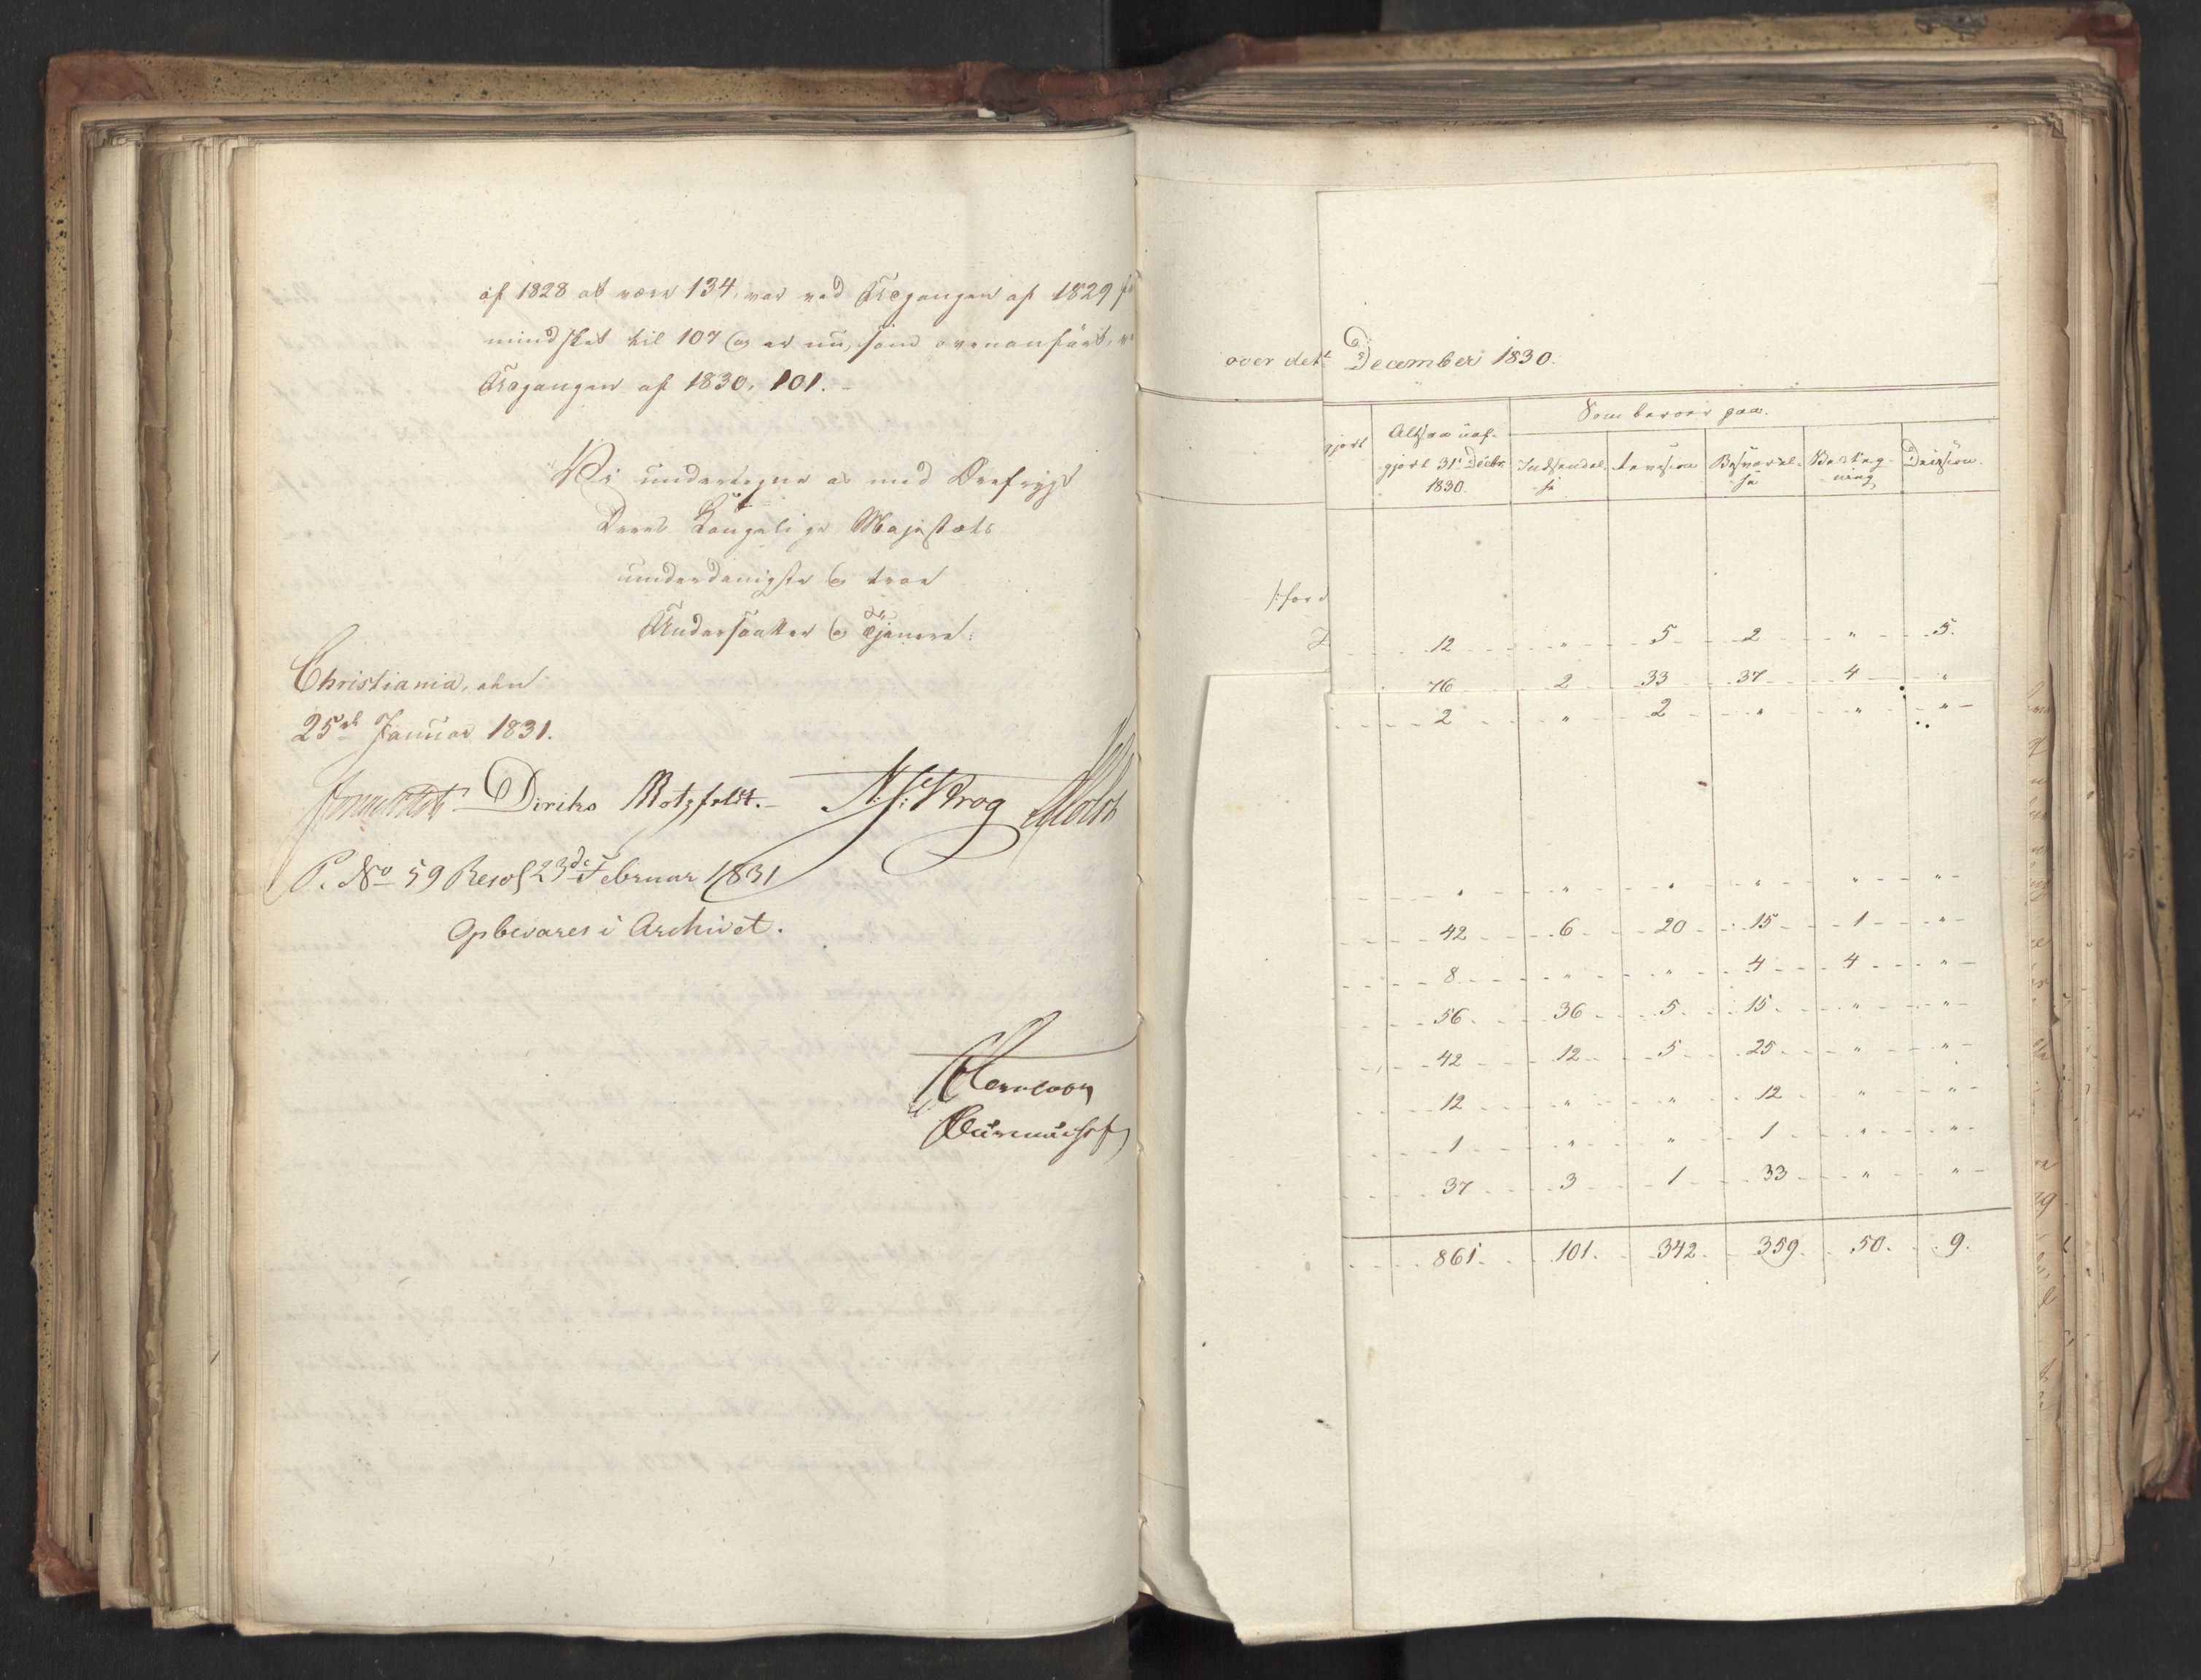 af 1828 at være 134, var ved Udgangen af 1829
mindsket til 107 og er nu, som ovenanført, ved
Udgangen af 1830, 101.
Vi undertegne os med Ærefrygt
Deres Kongelige Majestæts
underdanigste og troe
Undersaatter og Tjenere:
Christiania, den
25de Januar 1831.
Diriks Motzfeldt. N: J: Krog
P. No 59 Resol 23de Februar 1831
Opbevares i Archivet.
over det
December 1830.
Som beroer paa.
gjort
Altsaa uaf-
gjort 31te Decbr
1830.
Indsendel-
se
Revision
Besvarel-
se
Betæg-
ning
Decision.
/:for
12 " 5 2 " 5.
76 2 33 37 4 "
2 " 2 " " "
" " " " " "
42 6 20 15 1 "
8 " " 4 4 "
56 36 5 15 " "
42 12 5 25 " "
12 " " 12 " "
1 " " 1 " "
37 3 1 33 " "
861. 101. 342. 359. 50. 9.